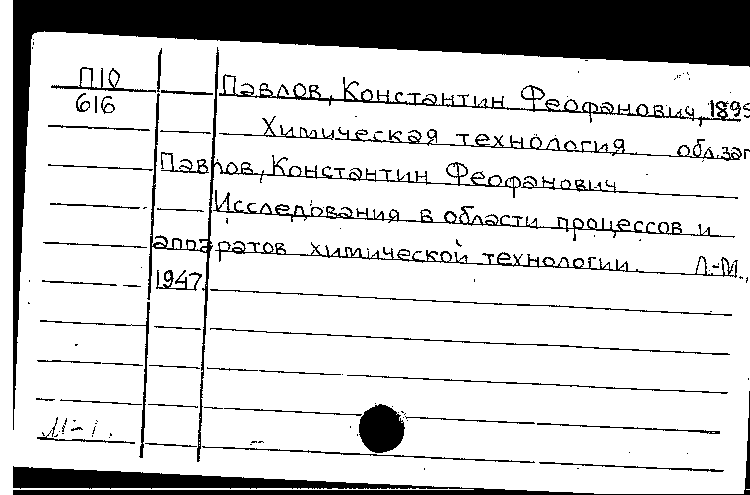 П10
616
Павлов, Константин Феофанович, 1899
Химическая технология обл.заг
Павлов, Константин Феофанович
Исследования в области процессов и
аппаратов химической технологии. Л.-М.,
1947.